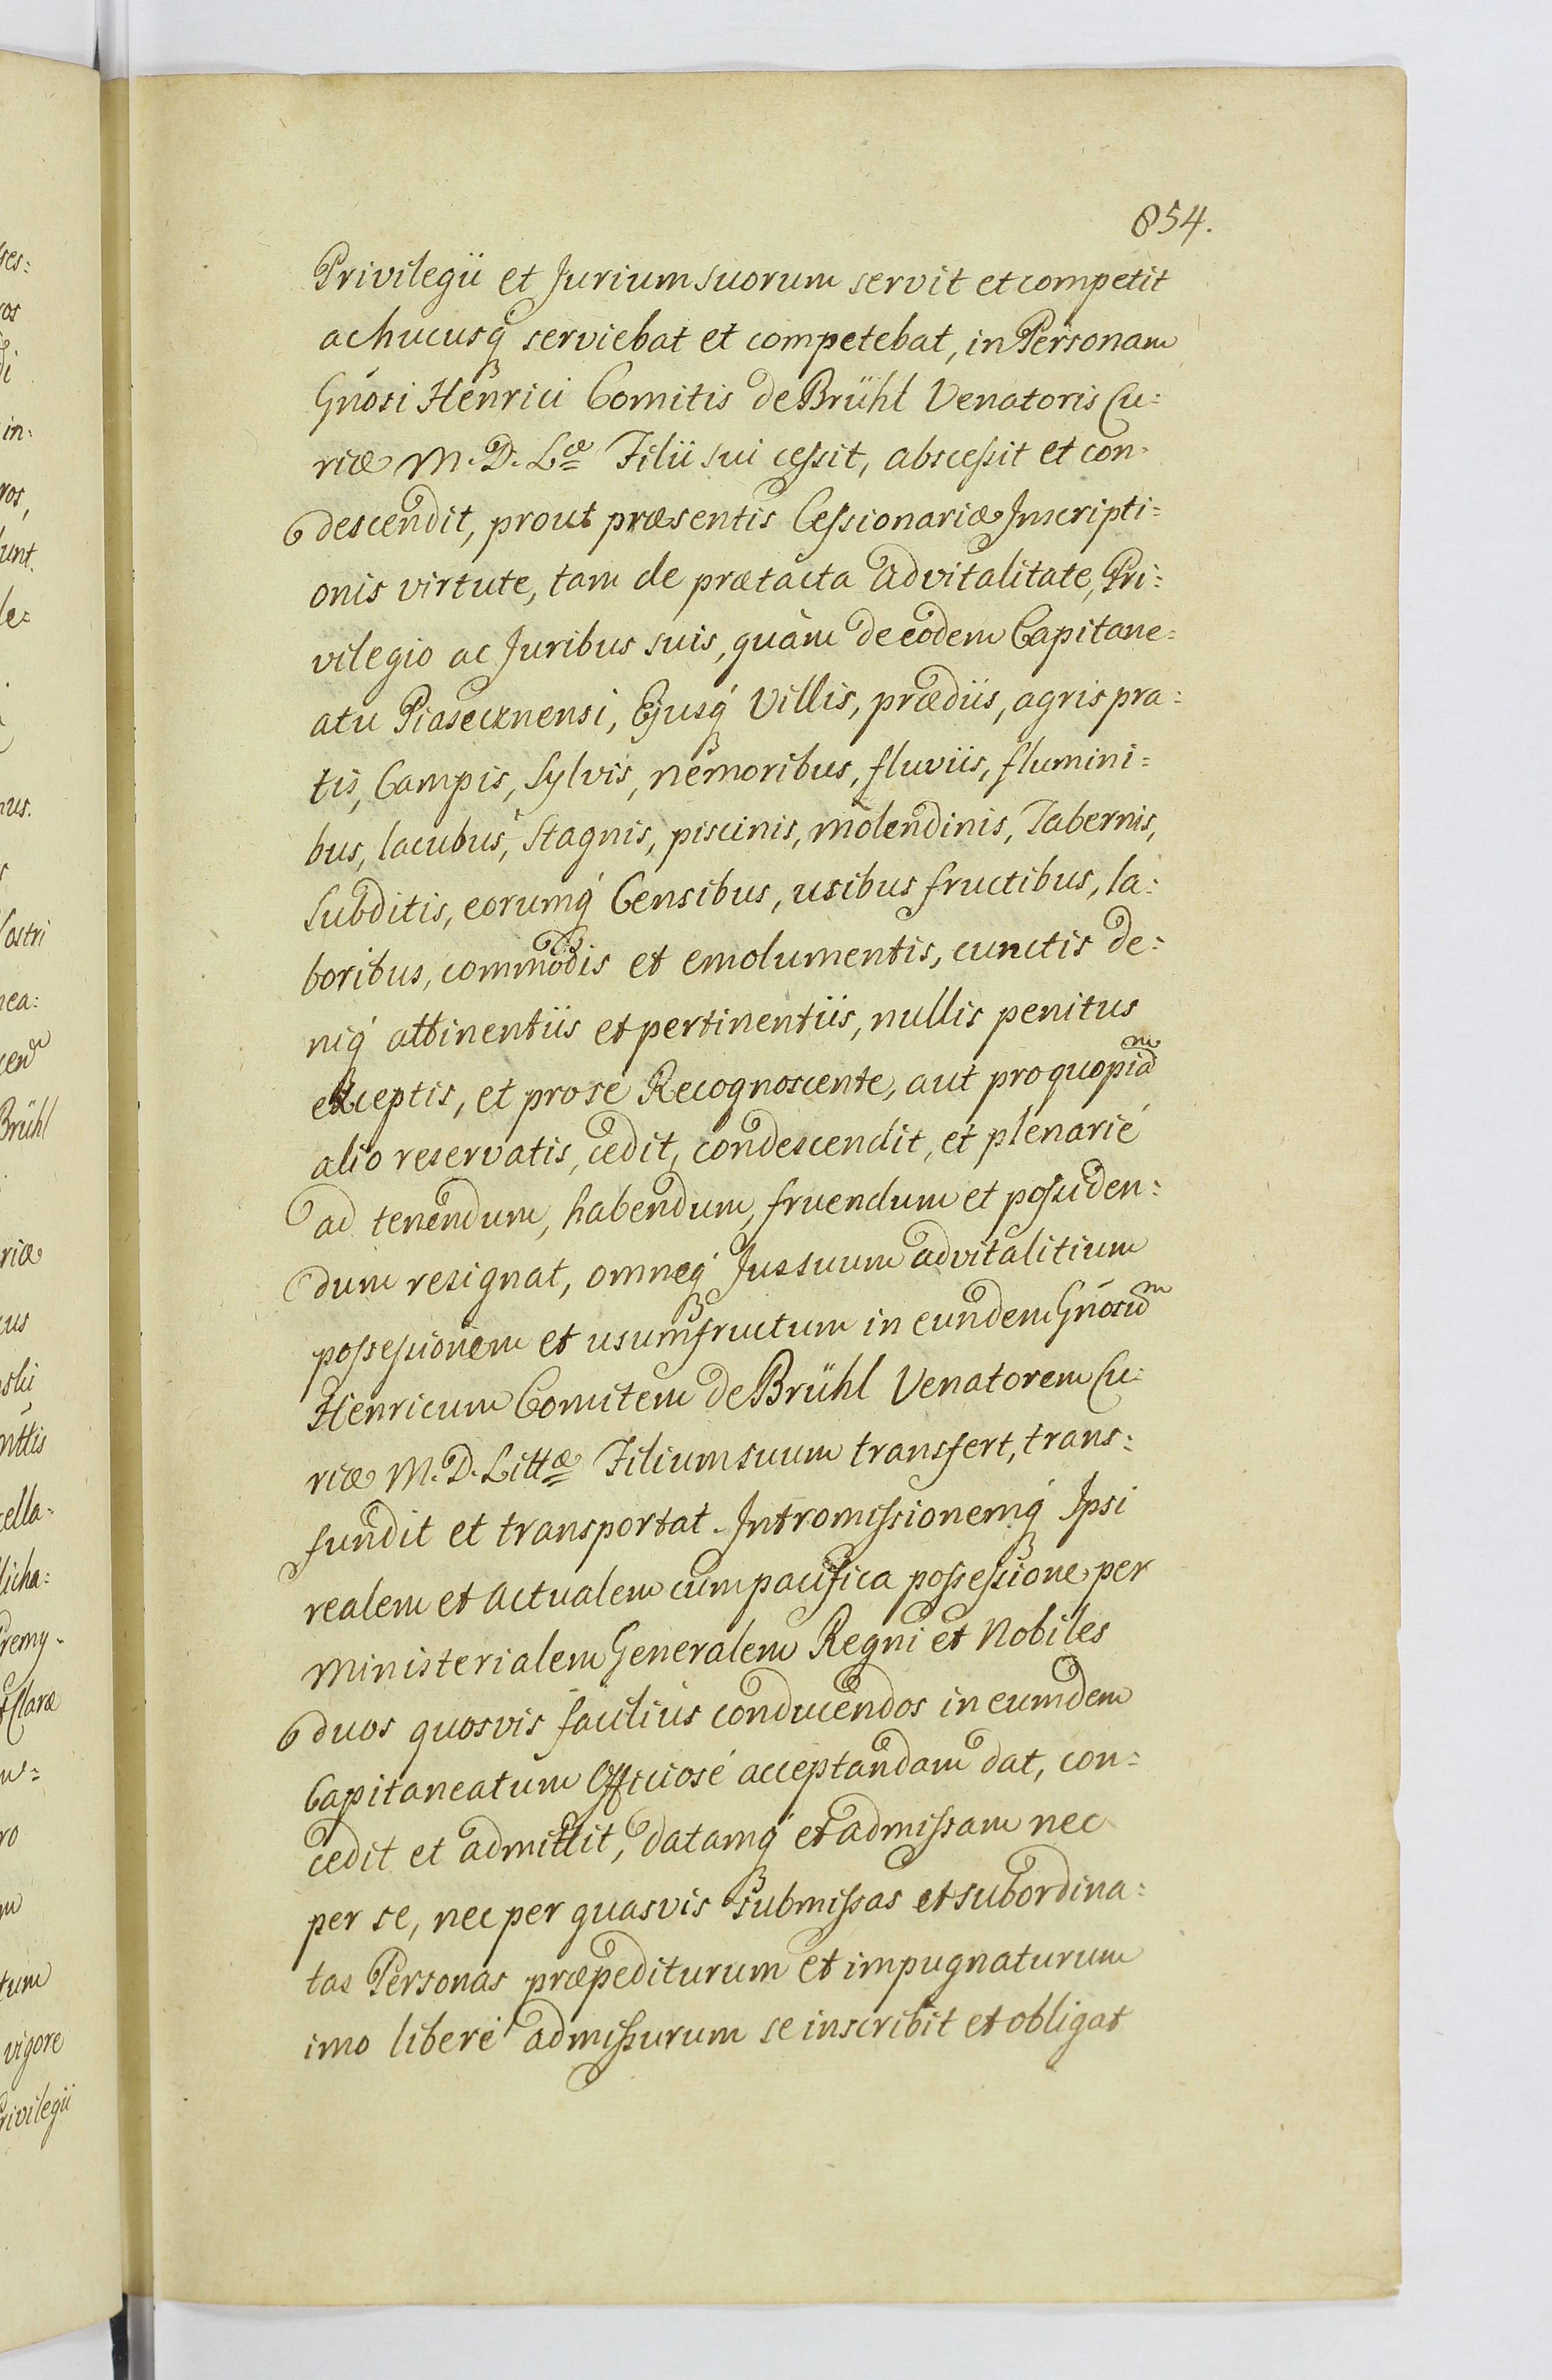 854.
Privilegii et Jurium suorum servit et competit
ac hucusq serviebat et competebat, in Personam
Gnosi Henrici Comitis de Brühl Venatoris Cu:
riæ M. D. Læ Filii sui cessit, abscessit et con:
descendit, prout præsentis Cessionariæ Inscripti:
onis virtute, tam de prætacta advitalitate, Pri:
vilegio ac Juribus suis, quàm de eodem Capitane:
atu Piasecznensi, Ejusq Villis, prædiis, agris pra:
tis, Campis, Sylvis, nemoribus, fluviis, flumini:
bus, lacubus, Stagnis, piscinis, molendinis, Tabernis,
Subditis, eorumq Censibus, usibus fructibus, la:
boribus, commodis et emolumentis, cunctis de:
niq attinentiis et pertinentiis, nullis penitus
exceptis, et pro se Recognoscente, aut pro quopiam
alio reservatis, cedit, condescendit, et plenarié
ad tenendum, habendum, fruendum et possiden:
dum resignat, omneq Jus suum advitalitium
possessionem et usumfructum in eundem Gnosum
Henricum Comitem de Brühl Venatorem Cu:
riæ M. D. Littæ Filium suum transfert, trans:
fundit et transportat. Intromissionemq Ipsi
realem et actualem cum pacifica possessione per
Ministerialem Generalem Regni et Nobiles
duos quosvis faciliús conducendos in eumdem
Capitaneatum Officiosé acceptandam dat, con:
cedit et admittit, datamq et admissam nec
per se, nec per quasvis submissas et subordina:
tas Personas præpediturum et impugnaturum
imo liberé admissurum se inscribit et obligat
ostri
Brühl
riæ
Claræ
vigore
rivilegii